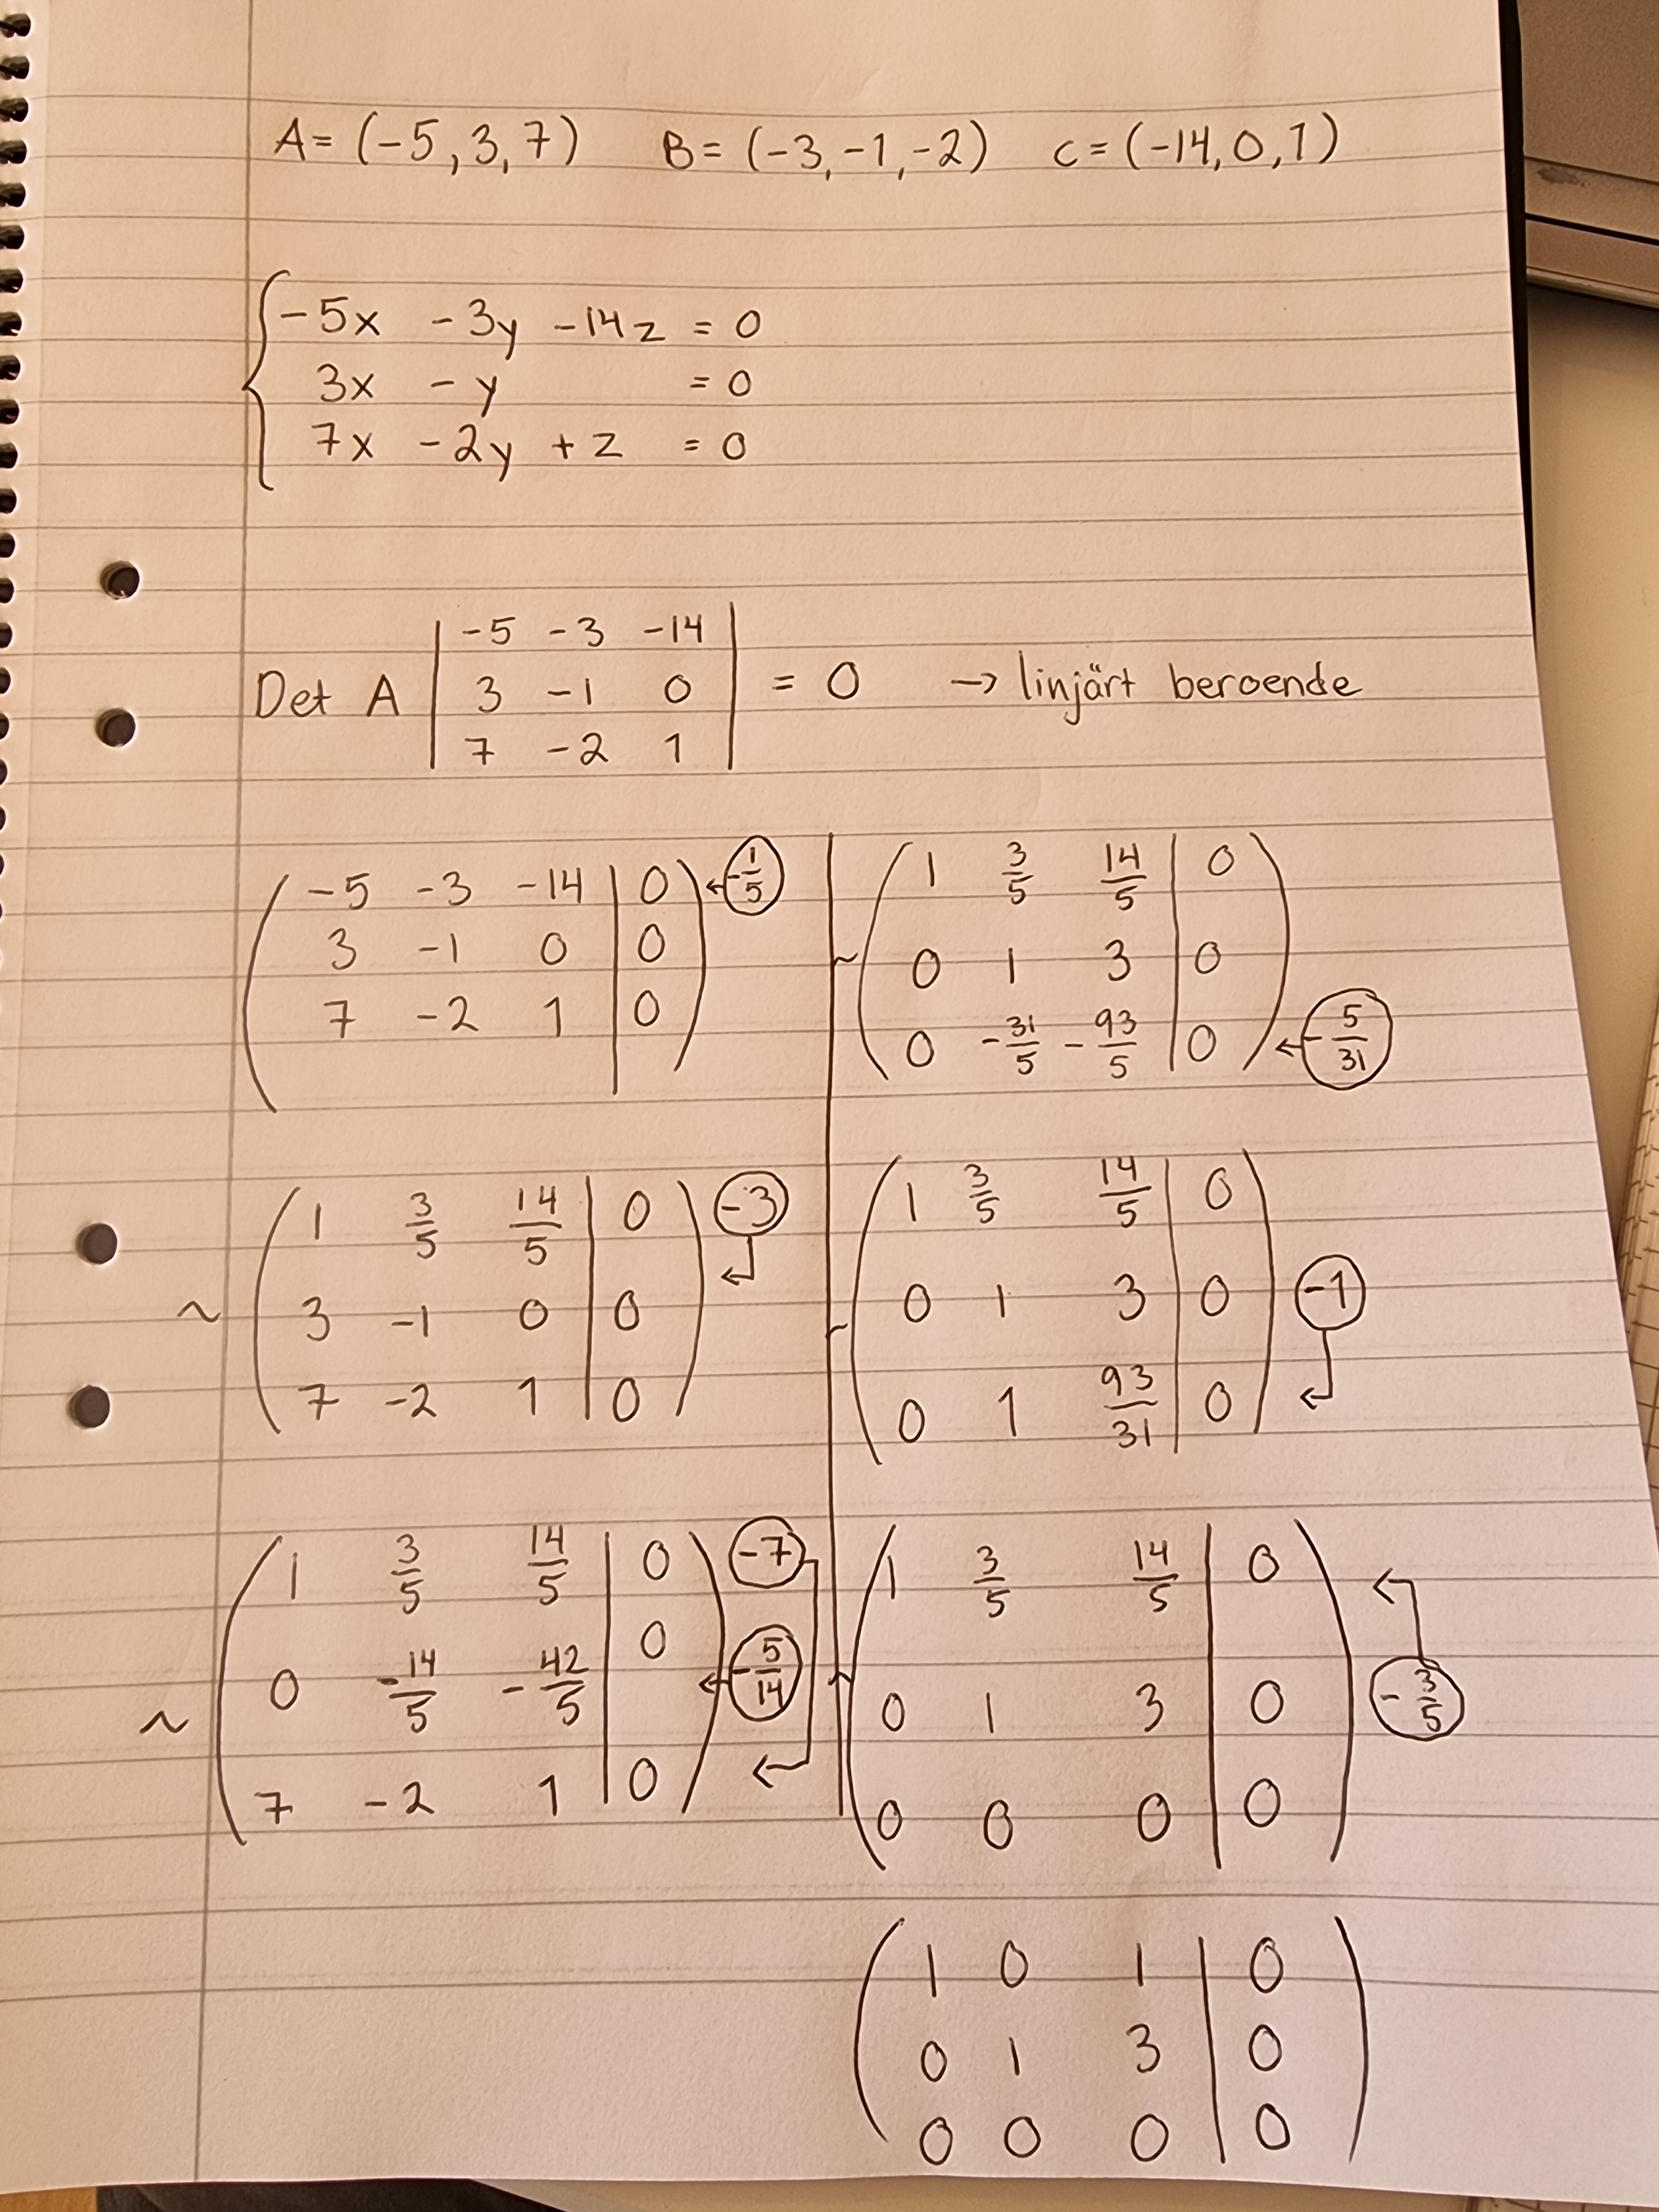 A= (-5,3,7) B= (-3,-1,-2) C=(-14,0,1)
-5x -3y -14z = 0
3x - y = 0
7x -2y + z = 0
-5 -3 -14
Det A 3 -1 0 = 0 → linjärt beroende
7 -2 1
-5 -3 -14 | 0 ← -1/5
3 -1 0 | 0
7 -2 1 | 0
~ 1 3/5 14/5 | 0 -3
3 -1 0 | 0
7 -2 1 | 0
~ 1 3/5 14/5 | 0 -7
0 -14/5 -42/5 | 0 ← -5/14
7 -2 1 | 0
~ 1 3/5 14/5 | 0
0 1 3 | 0
0 -31/5 -93/5 | 0 ← -5/31
~ 1 3/5 14/5 | 0
0 1 3 | 0 -1
0 1 93/31 | 0
~ 1 3/5 14/5 | 0
0 1 3 | 0 -3/5
0 0 0 | 0
1 0 1 | 0
0 1 3 | 0
0 0 0 | 0